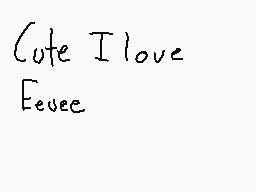 Cute I love
Eevee